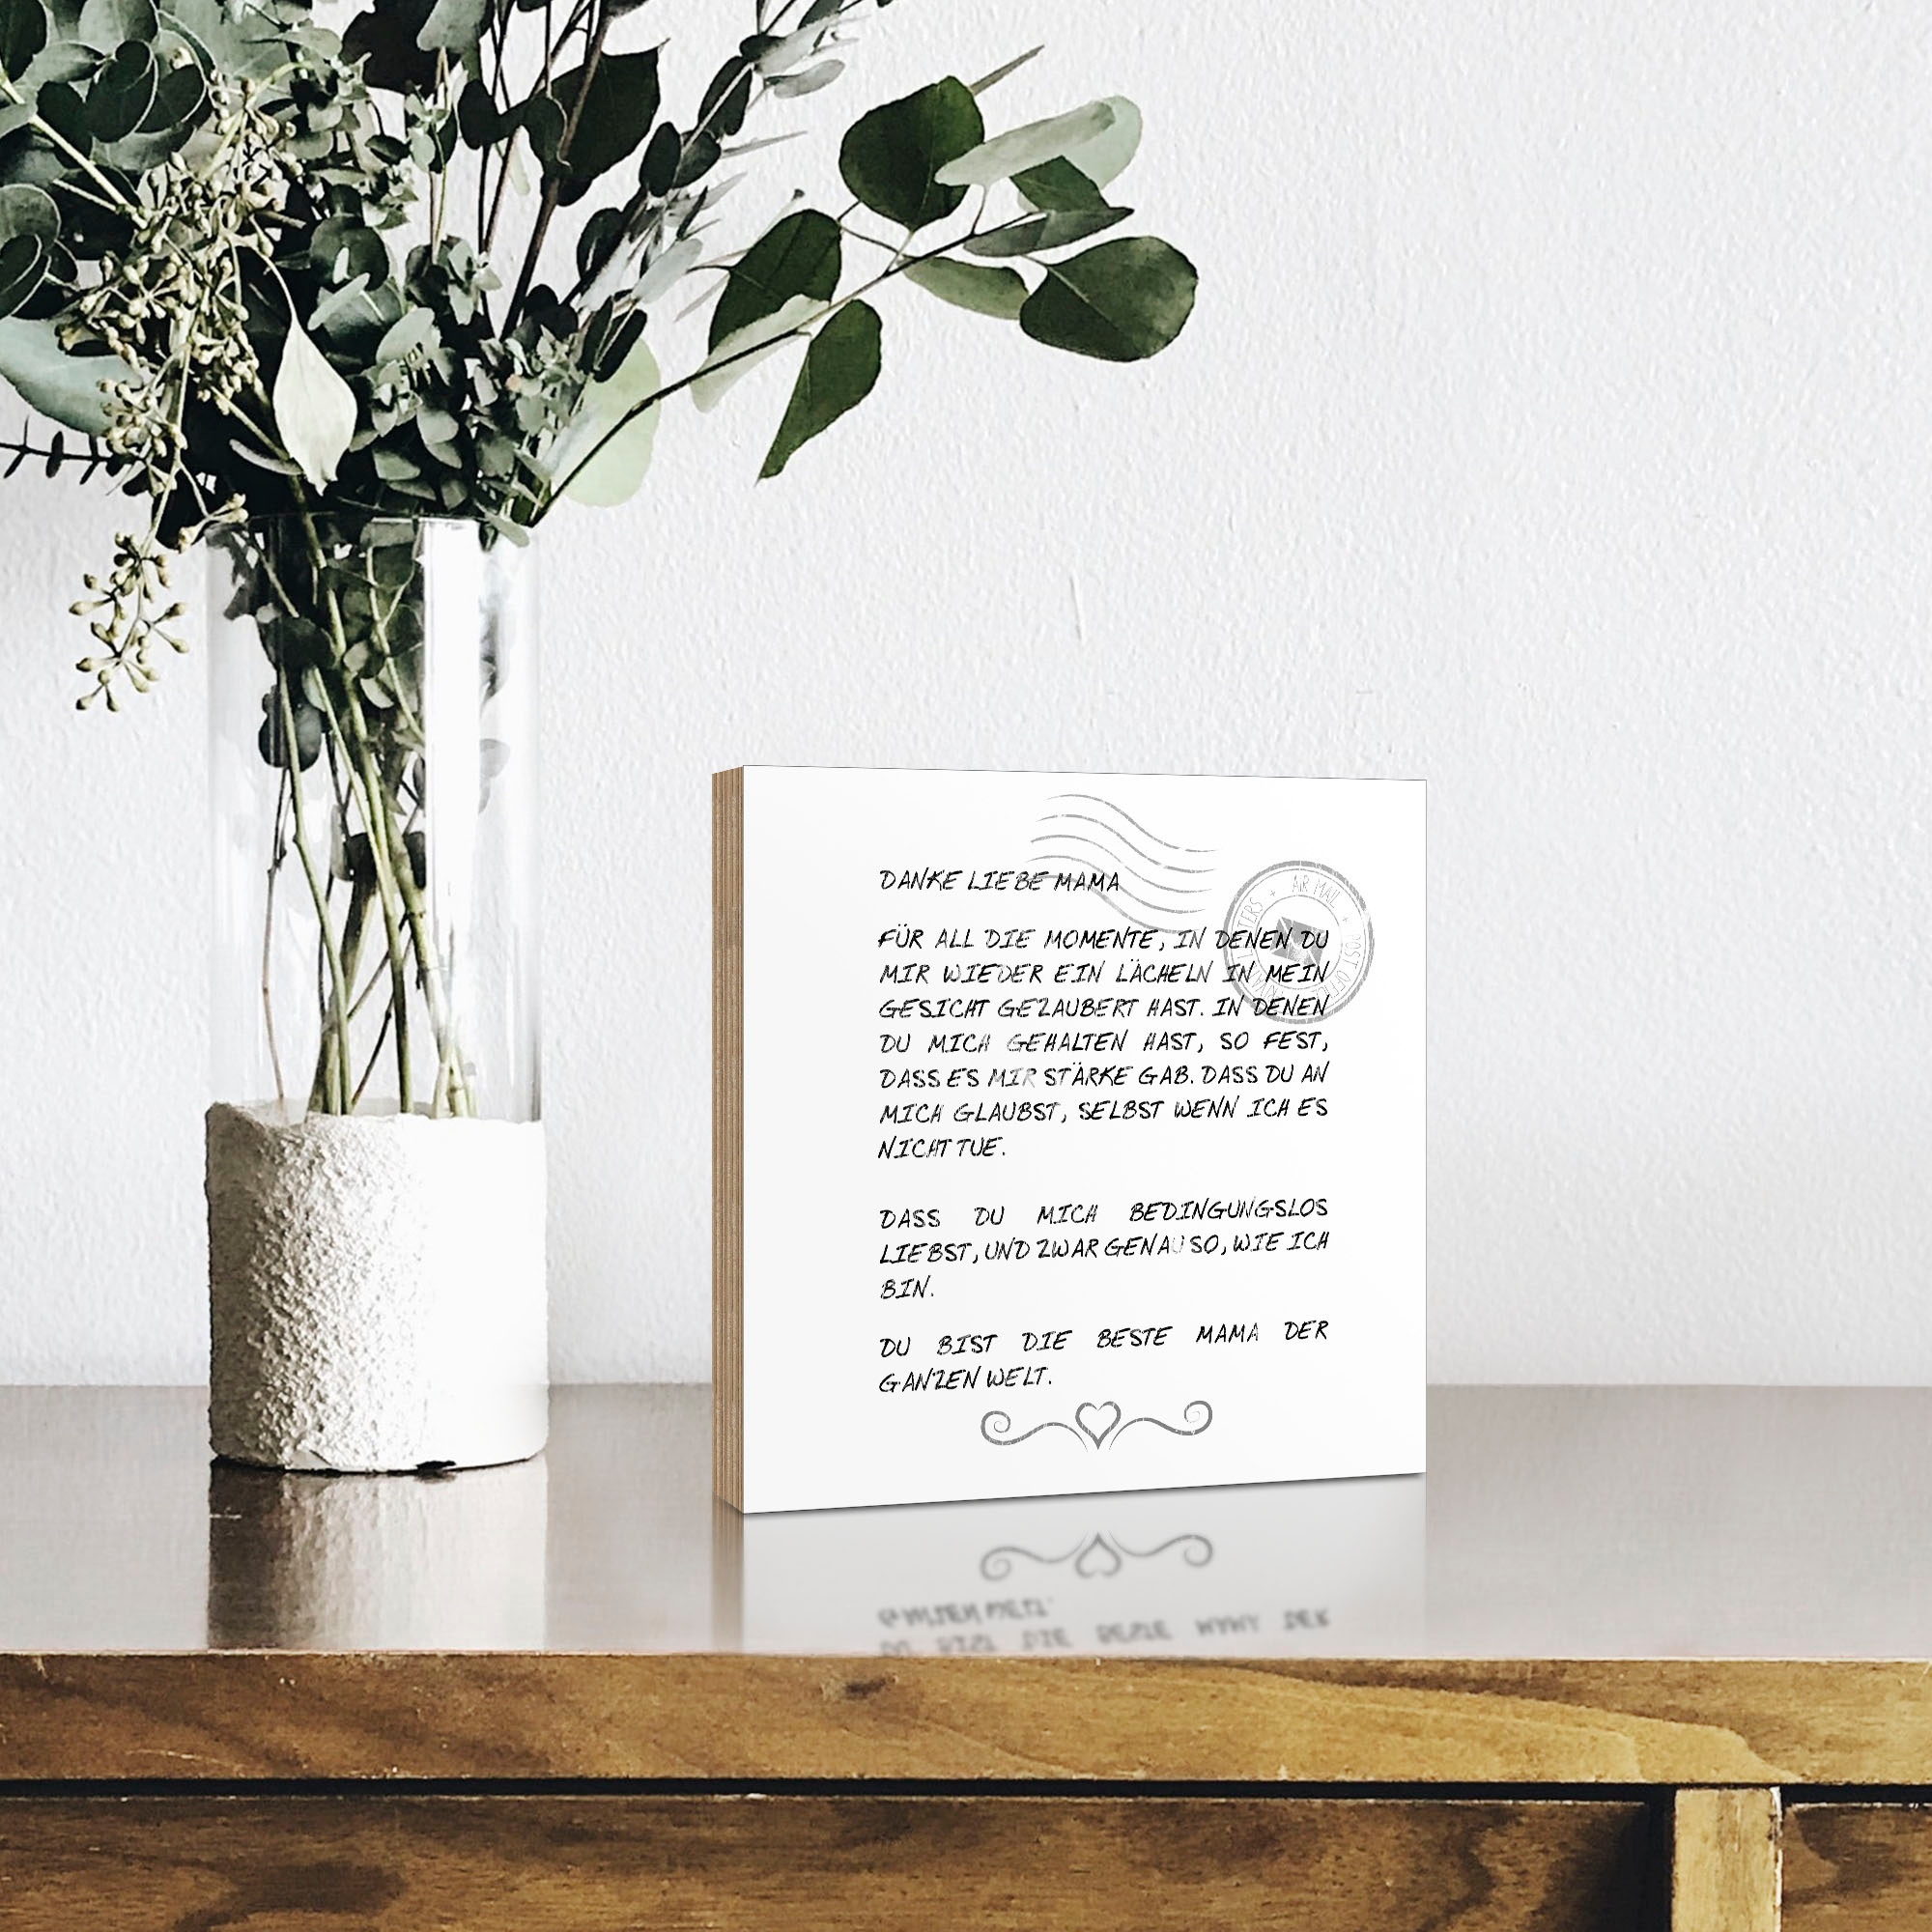 DANKE LIEBE MAMA
FÜR ALL DIE MOMENTE, IN DENEN DU
MIR WIEDER EIN LÄCHELN IN MEIN
GESICHT GEZAUBERT HAST. IN DENEN
DU MICH GEHALTEN HAST, SO FEST,
DASS ES MIR STÄRKE GAB. DASS DU AN
MICH GLAUBST, SELBST WENN ICH ES
NICHT TUE.
DASS DU MICH BEDINGUNGSLOS
LIEBST, UND ZWAR GENAU SO, WIE ICH
BIN.
DU BIST DIE BESTE MAMA DER
GANZEN WELT.
AIR MAIL
POST OFFICE